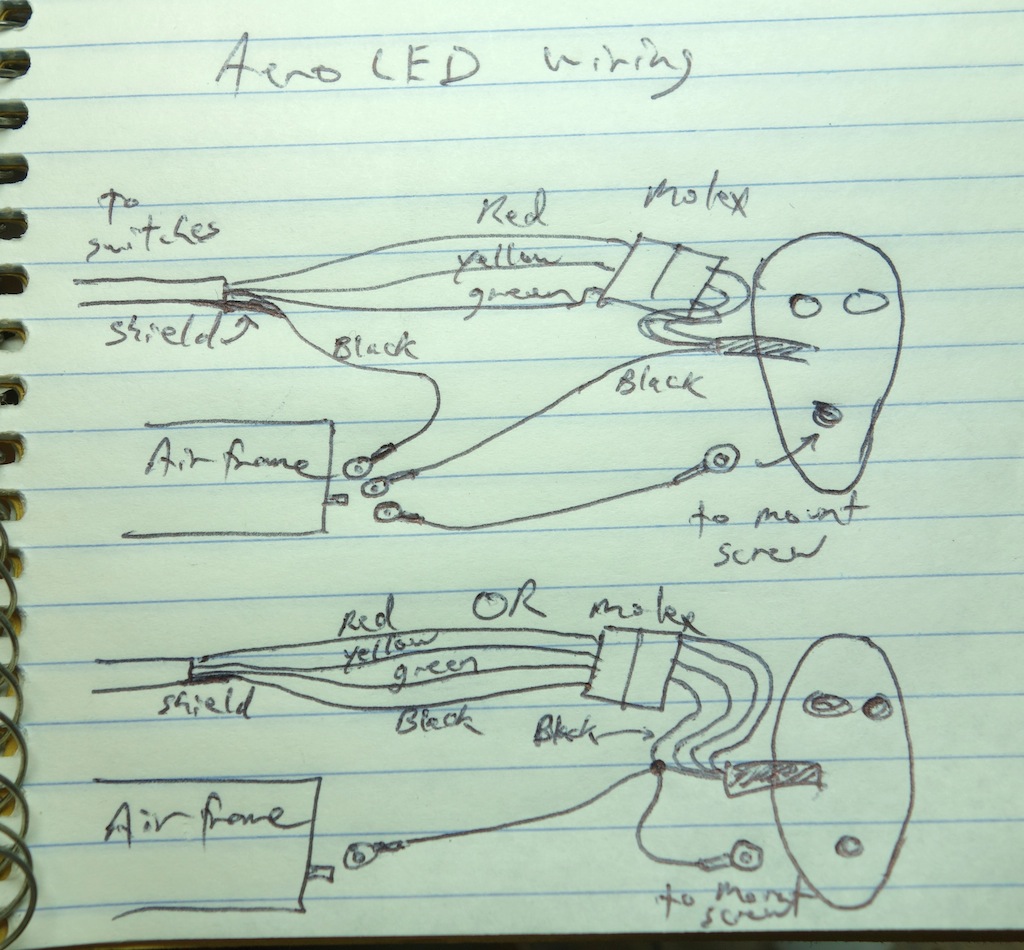 Aero LED wiring
To
switches
Red
Molex
yellow
green
shield
Black
Black
Airframe
to mount
screw
OR
Molex
Red
yellow
green
shield
Black
Black
Airframe
to mount
screw